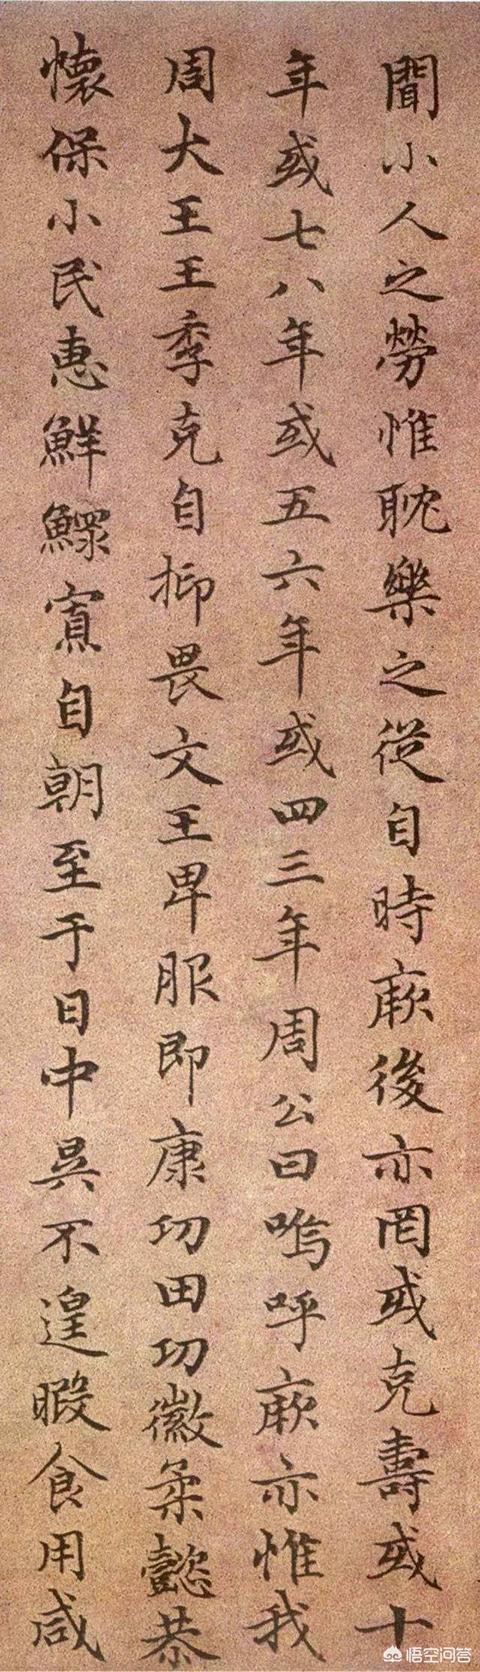 聞小人之勞惟耽樂之從自時厥後亦罔或克壽或十
年或七八年或五六年或四三年周公曰嗚呼厥亦惟我
周大王王季克自抑畏文王卑服即康功田功徽柔懿恭
懷保小民惠鮮鰥寡自朝至于日中昃不遑暇食用咸
悟空问答